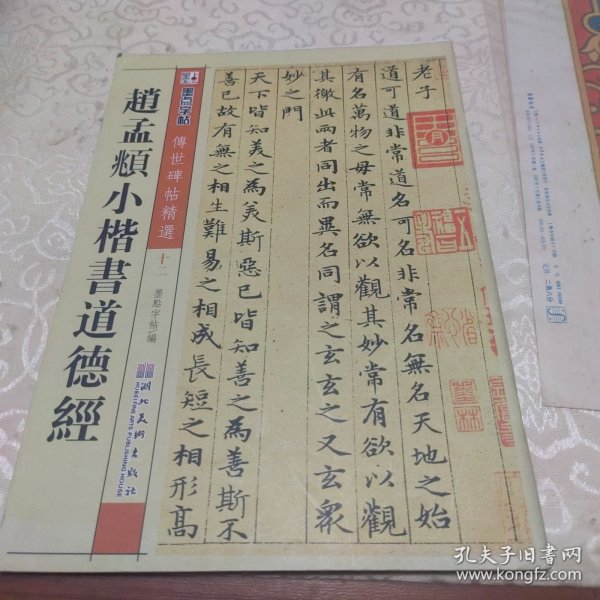 墨点字帖
傳世碑帖精選
十二
墨點字帖 編
趙孟頫小楷書道德經
湖北美術出版社
HUBEI FINE ARTS PUBLISHING HOUSE
老子
道可道非常道名可名非常名無名天地之始
有名萬物之母常無欲以觀其妙常有欲以觀
其徼此兩者同出而異名同謂之玄玄之又玄衆
妙之門
天下皆知美之為美斯惡已皆知善之為善斯不
善已故有無之相生難易之相成長短之相形高
孔夫子旧书网
www.kongfz.com